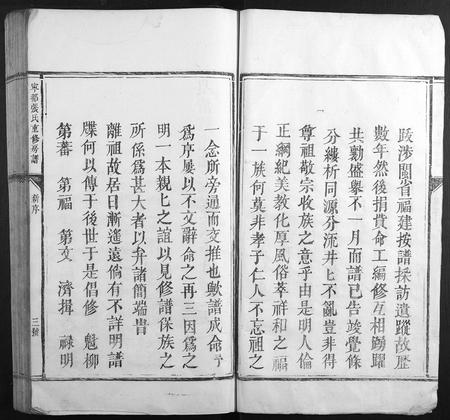 跋涉閩省福建按譜採訪遺蹤故歷
數年然後捐貲命工編修互相踴躍
共勷盛擧不一月而譜已告竣覺條
分縷析同源分流井上不亂豈非得
尊祖敬宗收族之意乎由是明人倫
正綱紀美教化厚風俗萃祥和之福
于一族何莫非孝子仁人不忘祖之
一念所旁通而交推也歟譜成命予
爲序屢以不文辭命之再三因爲之
明一本親上之誼以見修譜保族之
所係爲甚大者以弁諸簡端旹
離祖故居日漸遙遠倘有不詳明譜
牒何以傳于後世于是倡修 魁柳
第蕃 第福 第文 濟揖 祿明
寧都張氏重修房譜
新序
三號